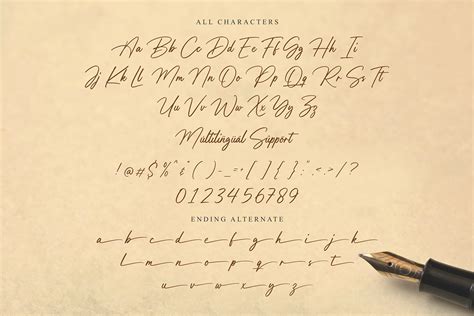 ALL CHARACTERS
Aa Bb Cc Dd Ee Ff Gg Hh Ii
Jj Kk Ll Mm Nn Oo Pp Qq Rr Ss Tt
Uu Vv Ww Xx Yy Zz
Multilingual Support
0123456789
ENDING ALTERNATE
a b c d e f g h i j k
l m n o p q r s t
u v w x y z